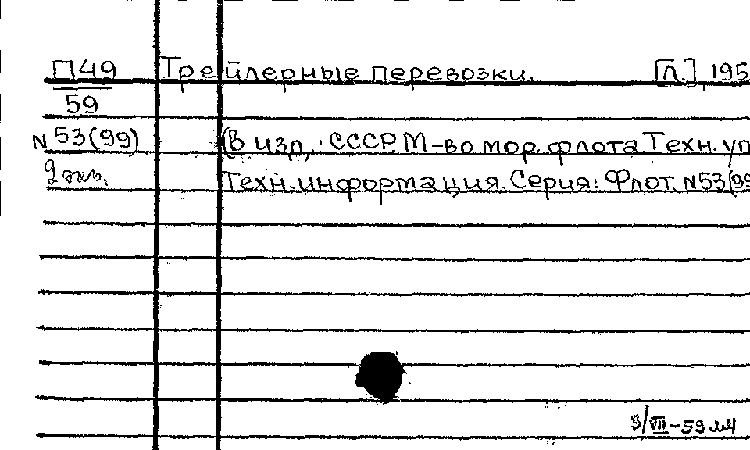 П49 Трейлерные перевозки. [Л.], 195
59
N 53(99) (В изд.: СССР. М-во мор. флота Техн. уп
2 экз. Техн. информация. Серия: Флот. N53(99
3/VII-59